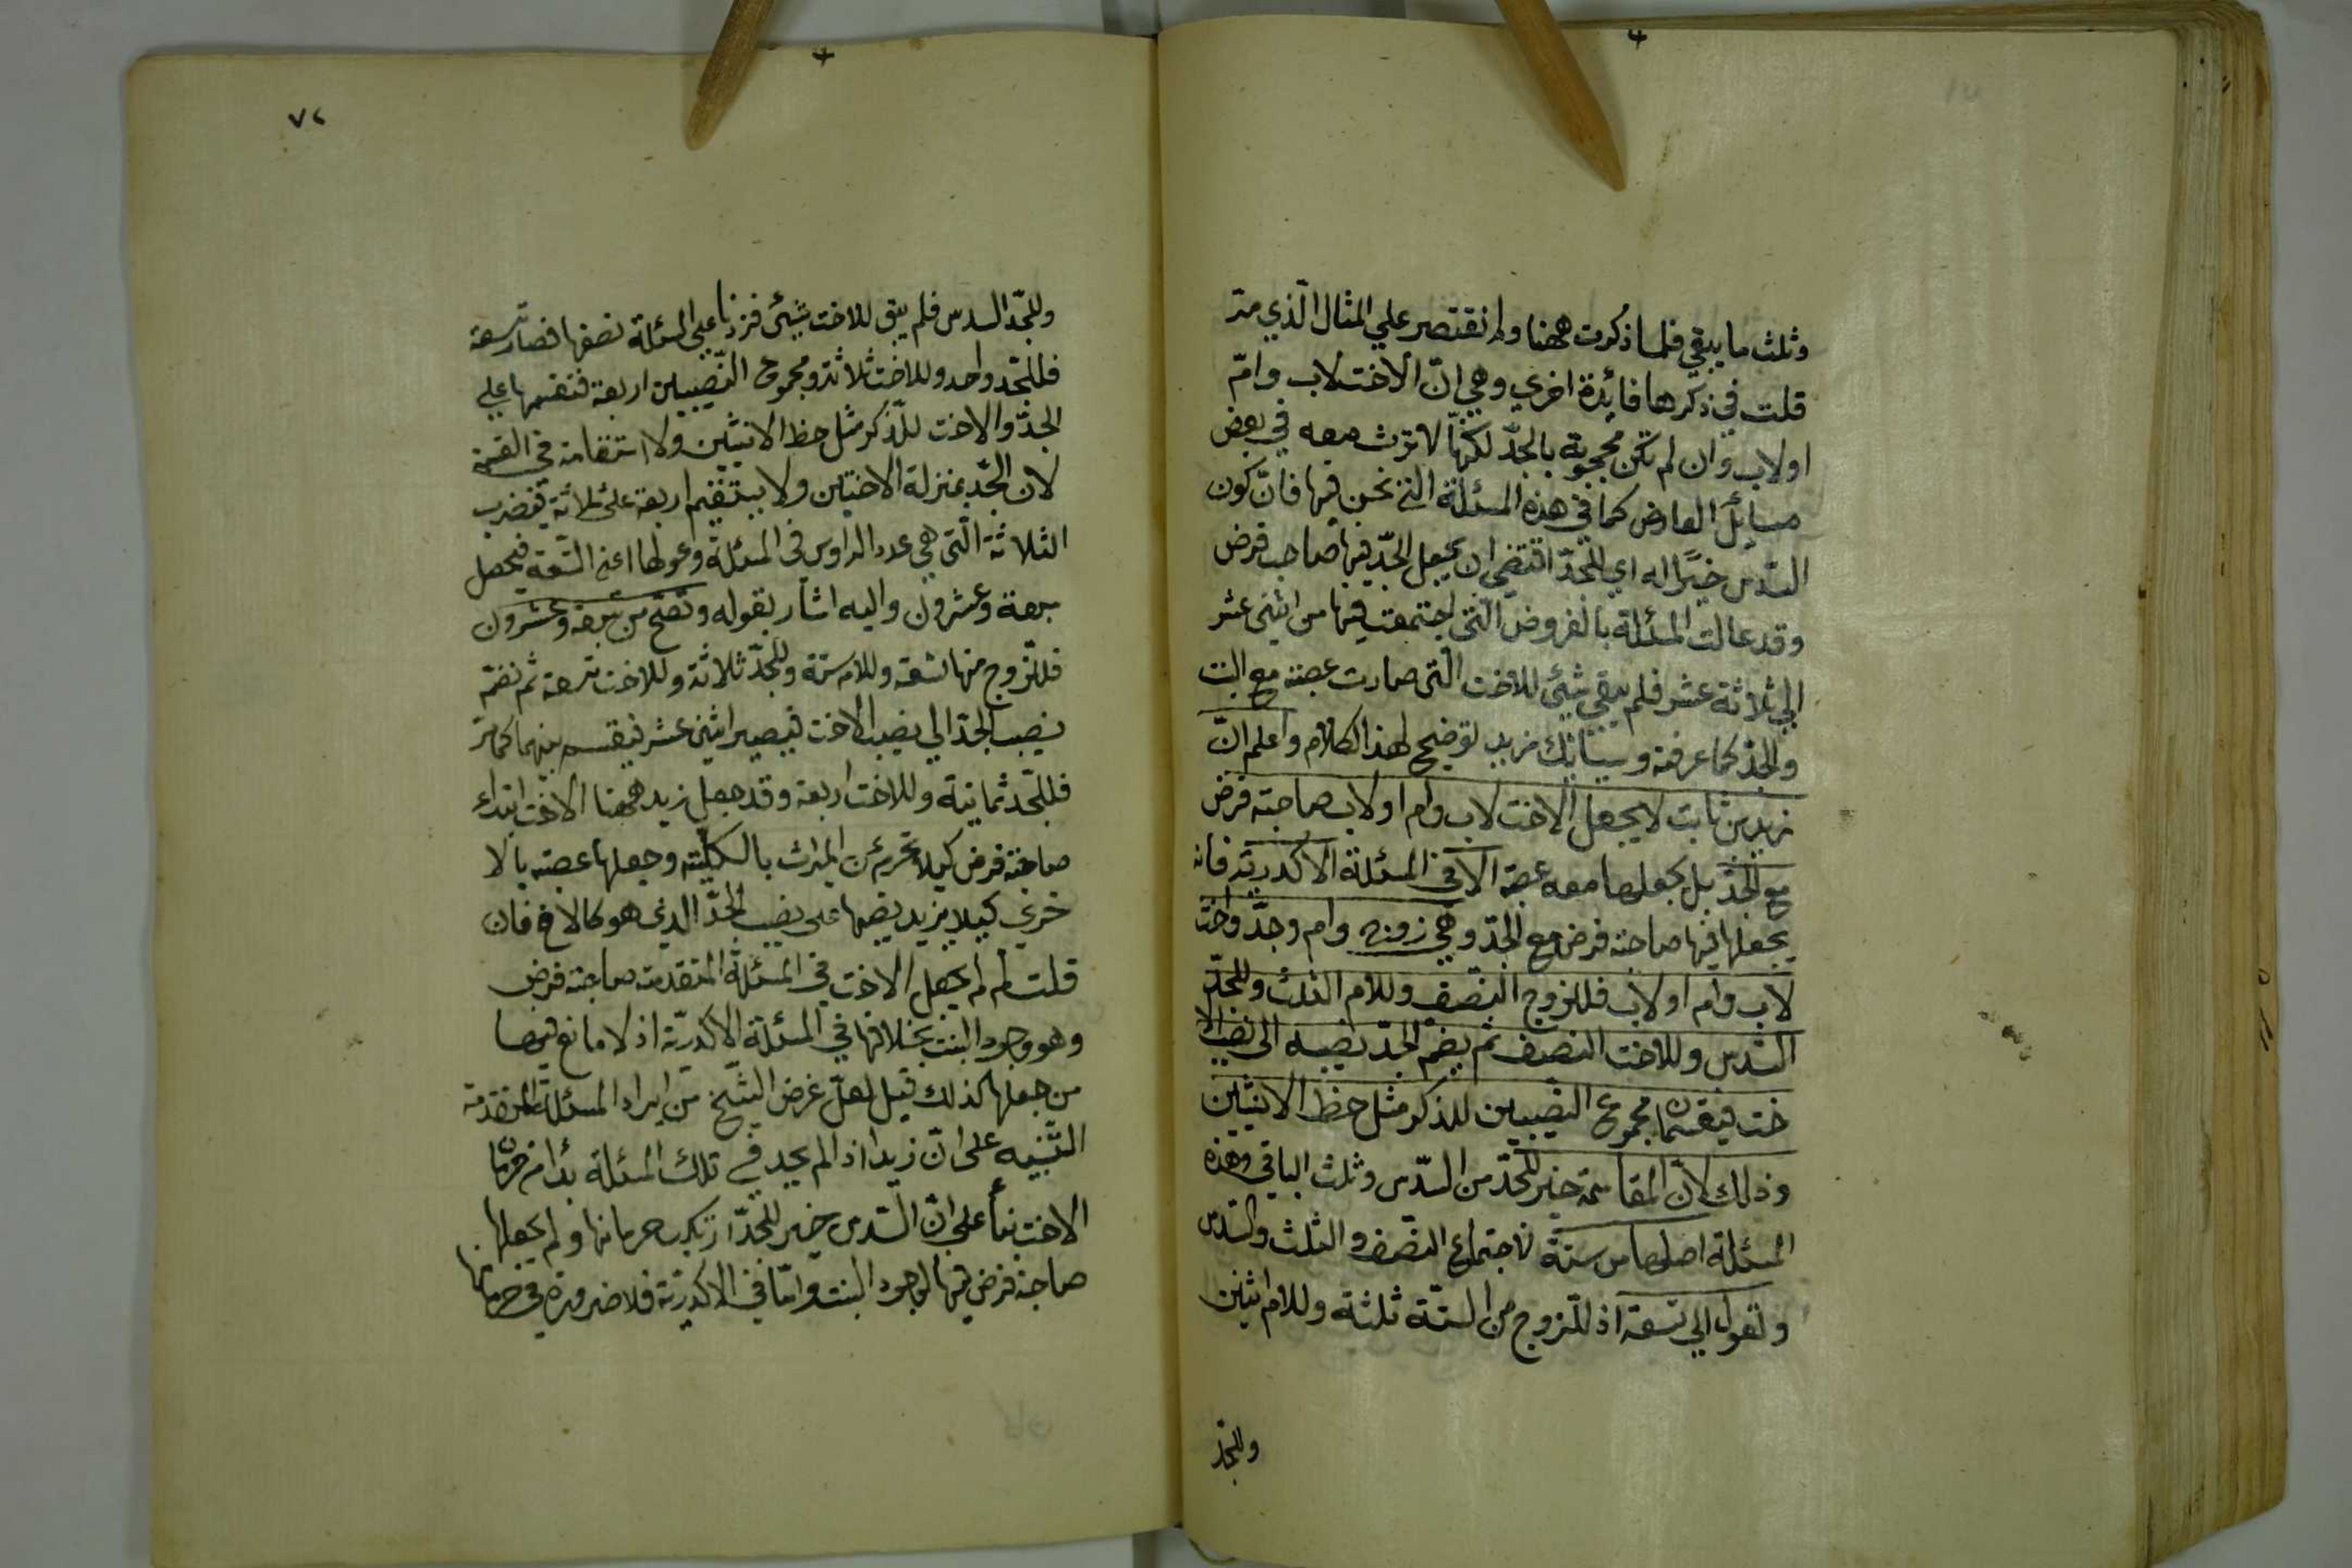 وثلث ما يبقي فلماذا ذكرت ههنا ولم نقتصر علي المثال الّذي مرّ
قلت في ذكرها فائدة اخري وهي انّ الاخت لاب وامّ
او لاب وان لم تكن محجوبة بالجدّ لكنّها لا ترث معه في بعض
مسائل العارض كما في هذه المسئلة التي نحن فيها فانّ كون
السّدس خيرًا له اي للجدّ اقتضي ان يجعل الجدّ فيها صاحب فرض
وقد عالت المسئلة بالفروض الّتي اجتمعت فيها من اثني عشر
الي ثلاثة عشر فلم يبقي شيئ للاخت الّتي صارت عصبة مع البنت
والجدّ كما عرفته وسيأتيك مزيد توضيح لهذا الكلام واعلم انّ
زيد بن ثابت لا يجعل الاخت لاب وام او لاب صاحبة فرض
مع الجدّ بل يجعلها معه عصبة الا في المسئلة الاكدريّة فانه
يجعلها فيها صاحبة فرض مع الجدّ وهي زوج وام وجدّ واخت
لاب وام او لاب فللزوج النّصف وللام الثلث وللجدّ
السّدس وللاخت النصف ثم يضم الجدّ نصيبه الى نصيب الا
خت فيقسمان مجموع النصيبين للذكر مثل حظ الانثيين
وذلك لانّ المقاسمة خير للجدّ من السّدس وثلث الباقي وهذه
المسئلة اصلها من ستة لاجتماع النصف و الثلث والسّدس
وتعول الي تسعة اذ للزوج من الستّة ثلثة وللام اثنين
وللجدّ
٧٢
وللجدّ السدس فلم يبق للاخت شيئ فزدنا علي المسئلة نصفها فصار تسعة
فللجدّ واحد وللاخت ثلاثة ومجموع النّصيبين اربعة فنقسمها علي
الجدّ والاخت للذّكر مثل حظ الانثيين ولا استقامة في القسمة
لان الجّد بمنزلة الاختين ولا يستقيم اربعة على ثلاثة فيضرب
الثلاثة الّتي هي عدد الراوس في المسئلة وعولها اعني التّسعة فيحصل
سبعة وعشرون واليه اشار بقوله وتصّح من سبعة وعشرون
فللزوج منها تسعة وللام ستة وللجدّ ثلاثة وللاخت تسعة ثم نضمّ
نصيب الجدّ الي نصيب الاخت فيصير اثني عشر فيقسم بينهما كما مرّ
فللجّد ثمانية وللاخت اربعة وقد جعل زيد ههنا الاخت ابتداء
صاحبة فرض كيلا تحرم عن الميراث بالكليّة وجعلها عصبة بالا
خري كيلا يزيد نصيبها علي نصيب الجدّ الذي هو كالاخ فان
قلت لم لم يجعل الاخت في المسئلة المتقدمة صاحبة فرض
وهو وجود البنت بخلافها في المسئلة الاكدريّة اذ لا مانع فيها
من جعلها كذلك قيل لعلّ غرض الشّيخ من ايراد المسئلة المتقدمة
التّنبيه على انّ زيدا اذا لم يجد في تلك المسئلة بدا من حرمان
الاخت بناء علي انّ السّدس خير للجدّ ارتكب حرمانها ولم يجعلها
صاحبة فرض فيها لوجود البنت وامّا في الاكدريّة فلا ضرورة في حرمانها